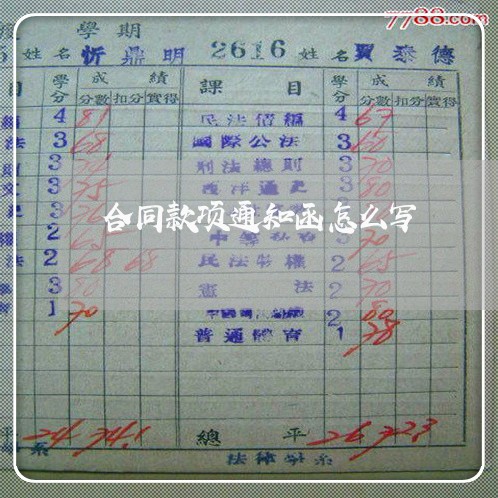 7788.com
學期
姓名 忻鼎明 2616 姓名 賈泰德
目 學分 成績 課目 學分 成績
分數 扣分 實得 分數 扣分 實得
4 81 民法債編 4 67
法 3 68 國際公法 3 60
3 刑法總則 3 70
3 75 西洋通史 3 80
合同款项通知函怎么写
2 70
法 2 68 68 民法物權 2 65
3 80 憲法 2 70
1 70 2 80
普通體育 1 78
平 24 74.1 總平 26 72.3
系 法律學系